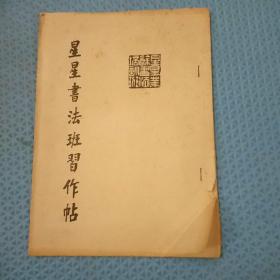 星星書法班習作帖